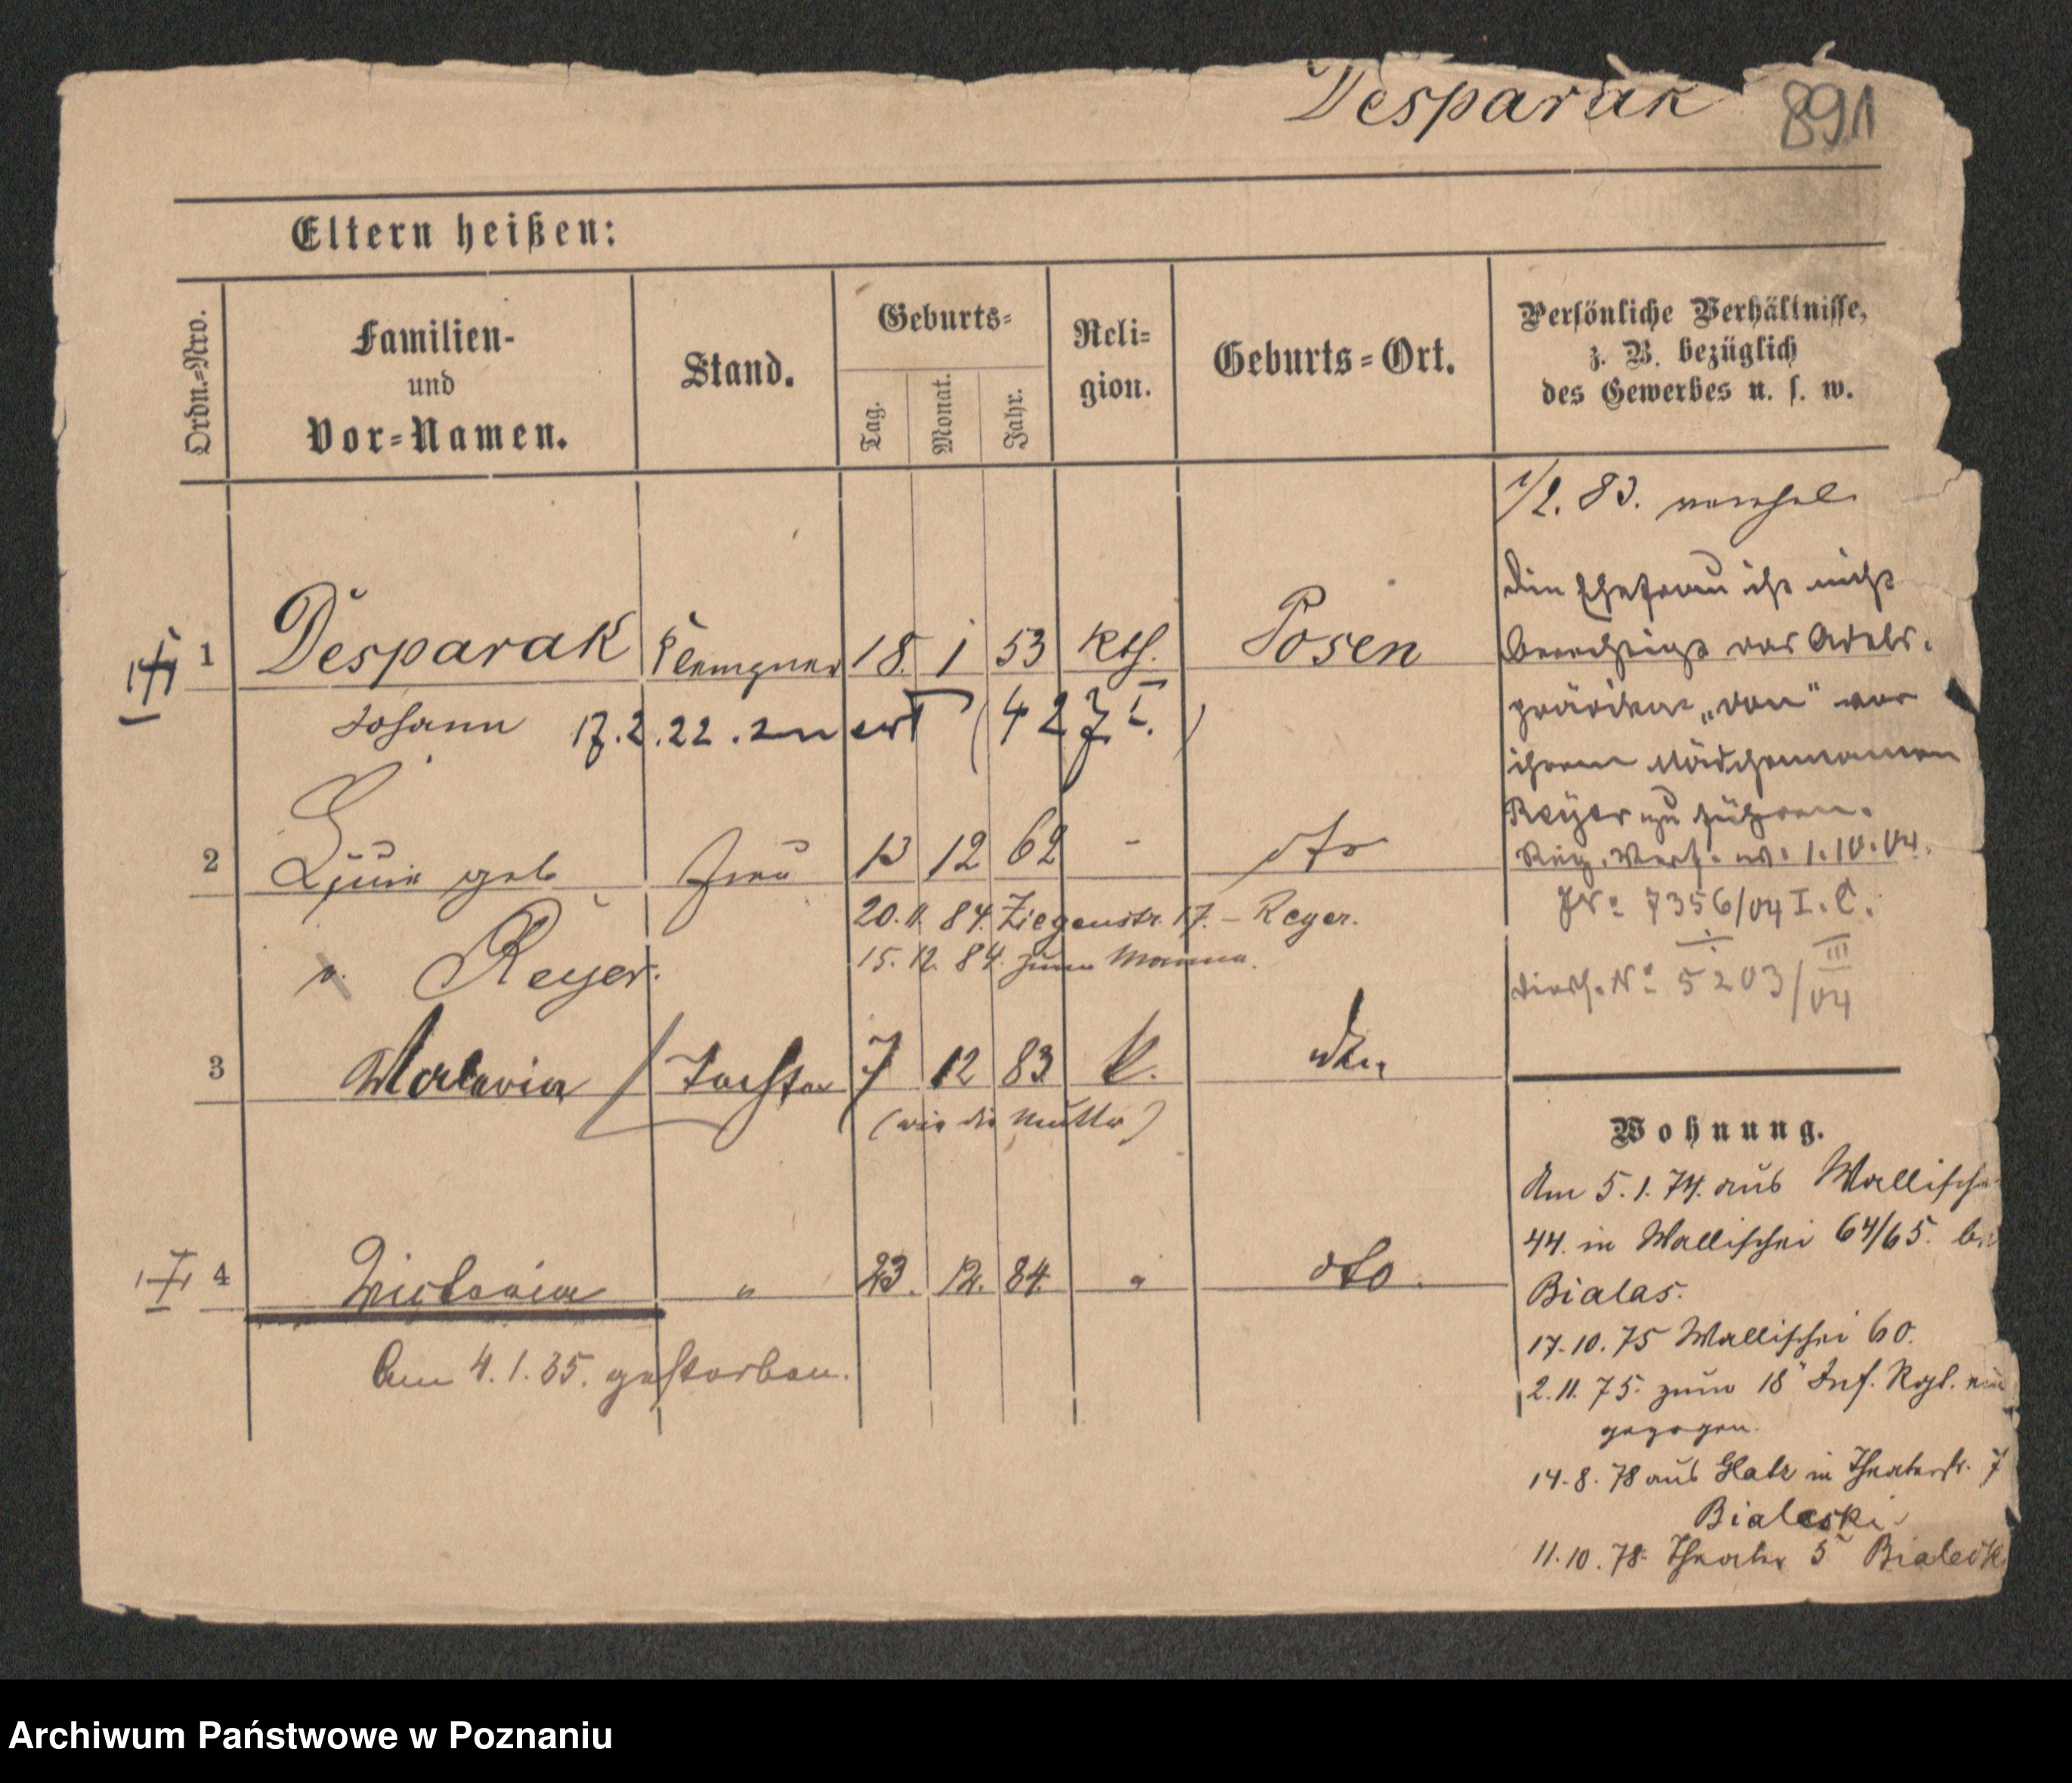 Desparak 891
Eltern heißen:
Ordn.=Nro.
Familien-
und
Vor=Namen.
Stand.
Geburts=
Tag.
Monat.
Jahr.
Reli=
gion.
Geburts=Ort.
Persönliche Verhältnisse,
z. B. bezüglich
des Gewerbes u. s. w.
1/2. 83.
1 Desparak Klempner 18. 1 53 kth. Posen
Johann 17.2.22. (427 I.)
2 geb Frau 13 12 62 - dto
20. 11. 84. Ziegenstr. 17. – Reyer.
v. Reyer.
15. 12. 84. zum Manne.
3 Tochter 7 12 83 k.
(wie die Mutter)
4 Victoria " 23. 12. 84. " dto.
Am 4. 1. 85. gestorben.
Die Ehefrau ist nicht
berechtigt das Adels-
prädikat „von" vor
ihrem Mädchennamen
Reyer zu führen.
Reg. Verf. v. 1.10.04.
JNo 7356/04 I. C.
No 5203/III 04
Wohnung.
Am 5. 1. 74. aus Wallischei
44. in Wallischei 64/65. bei
Bialas.
17. 10. 75 Wallischei 60.
2. 11. 75. zum 18 Inf. Rgt. ein
gezogen.
14. 8. 78 aus Glatz in Theaterstr. 7
Bialeski
11. 10. 78. Theater 5
Archiwum Państwowe w Poznaniu